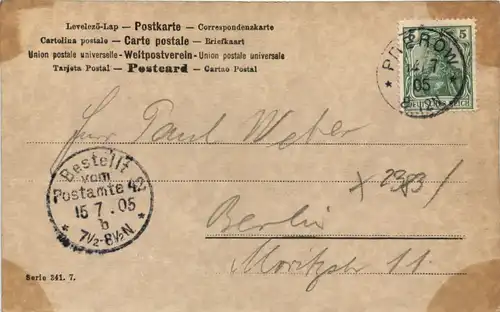 Levelező-Lap — Postkarte — Correspondenzkarte
Cartolina postale — Carte postale — Briefkaart
Union postale universelle — Weltpostverein — Union postale universale
Tarjeta Postal — Postcard — Cartao Postal
5
PÜTZROW
7
05
Herr Paul Weber
Bestellt
vom
Postamte 42
15 7.05
b
7½-8½N
Berlin
Moritzstr 11.
Serie 341. 7.